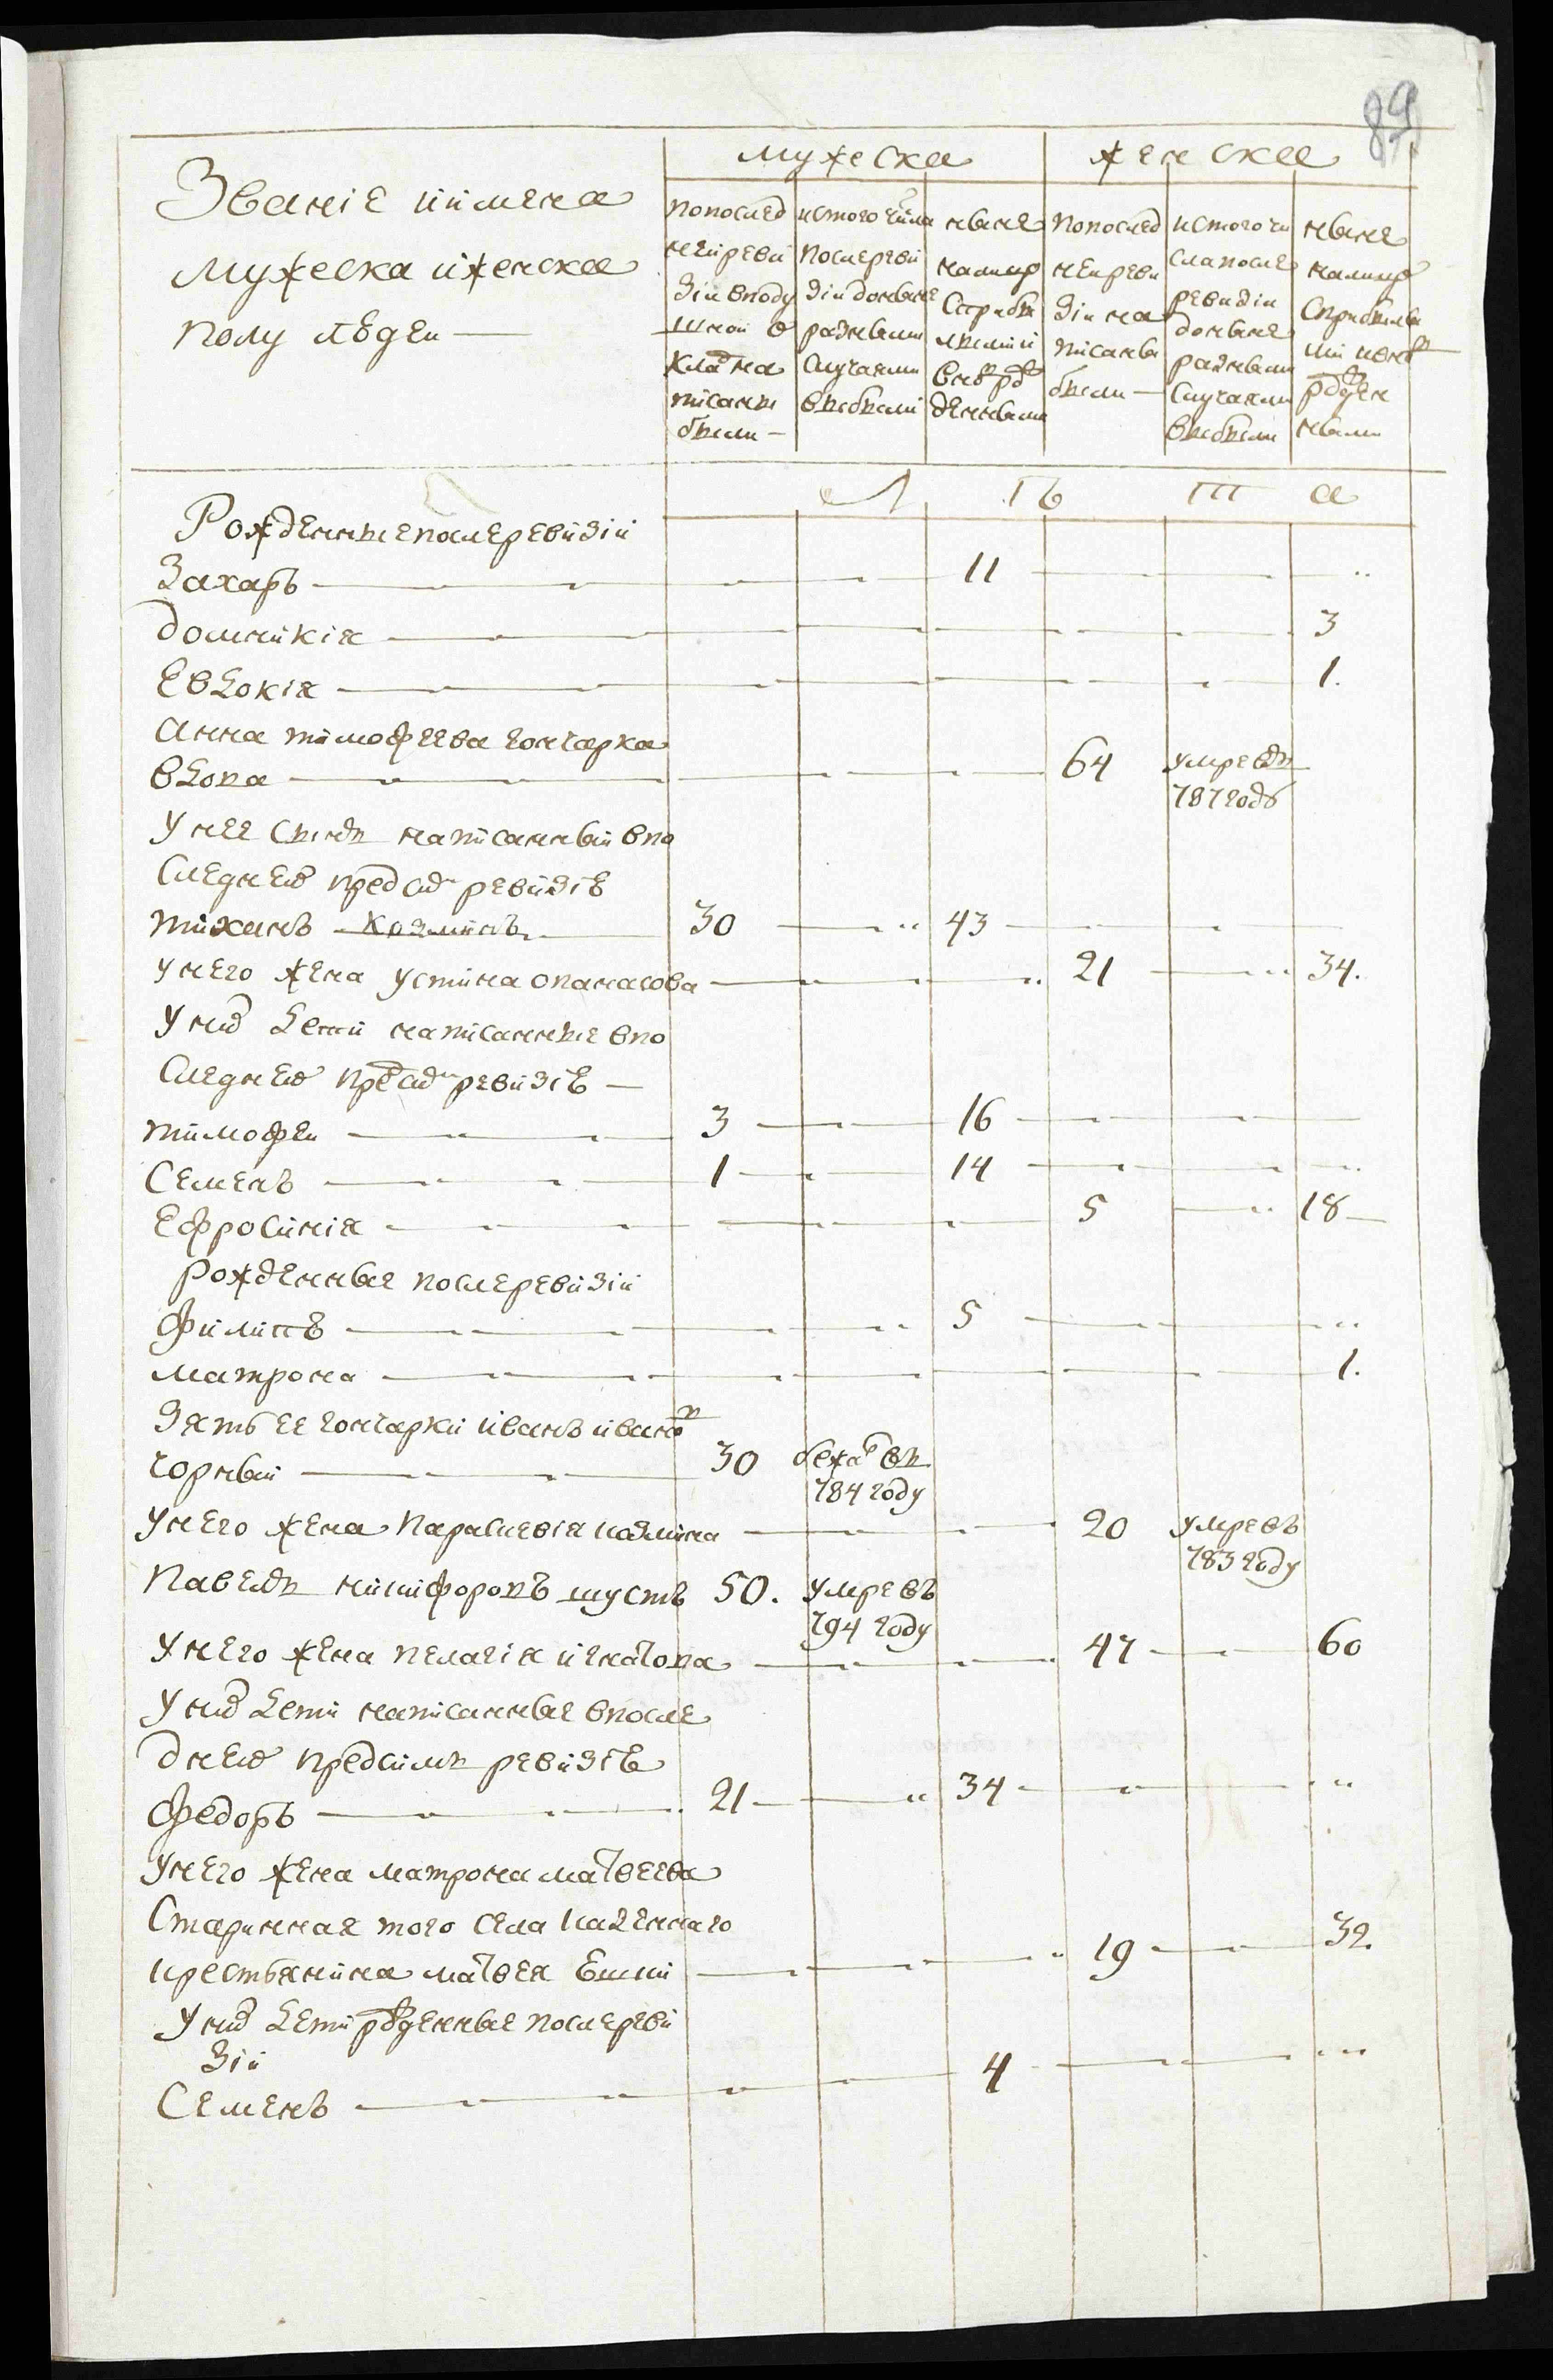 89
Званіе и имена
мужеска и женска
полу людей
мужеска
женска
По послед
ней реви
зіи в поду
шной о
клад на
писаны
были
ис того числа
после реви
зіи до ныне
разными
случаями
выбыли
ныне
на лицо
с прибы
лыми и
вновь рож
денными
По послед
ней реви
зіи на
писаны
были
ис того чи
сла после
ревизіи
до ныне
разными
случаями
выбыли
ныне
на лицо
с прибылы
ми и вновь
рожден
ными
Л Ѣ т а
Рожденные после ревизіи
Захаръ 11
Домникія 3
Евдокія 1.
Анна Тимофеева Гончарка
вдова 64 умре въ
787 годѣ
У нее сынъ написанный в по
следней пред сим ревизіѣ
Тиханъ Козминъ 30 43
У него жена Устина Опанасова 21 34.
У них дети написанные в по
следней пред сим ревизіѣ
Тимофей 3 16
Семенъ 1 14
Ефросинія 5 18
Рожденные после ревизіи
Филипъ 5
Матрона 1.
Зять ее Гончарки Иванъ Иванов
Чорный 30 бежал въ
784 году
У него жена Парасиевія Козмина 20 умре въ
783 году
Павелъ Никифоровъ Шусть 50. умре въ
794 году
У него жена Пелагія Игнатова 47 60
У них дети написанные в после
дней пред симъ ревизіѣ
Федоръ 21 34
У него жена Матрона Матвеева
Старинная того села казенного
крестьянина Матвея 19 32.
У них дети рожденные после реви
зіи
Семенъ 4